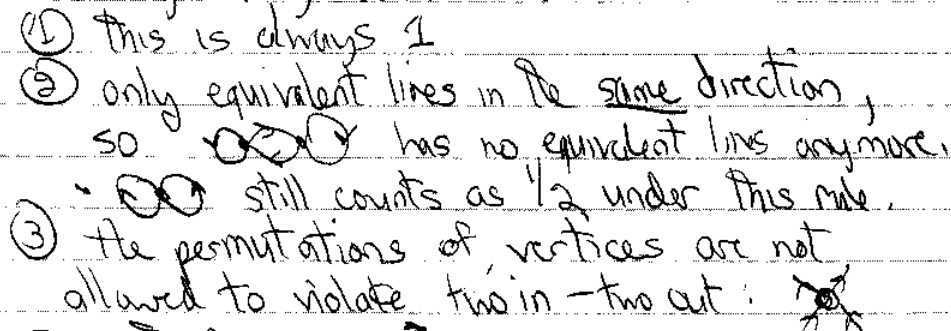 ① this is always 1
② only equivalent lines in the same direction,
so has no equivalent lines anymore.
still counts as 1/2 under this rule.
③ the permutations of vertices are not
allowed to violate two in - two out: